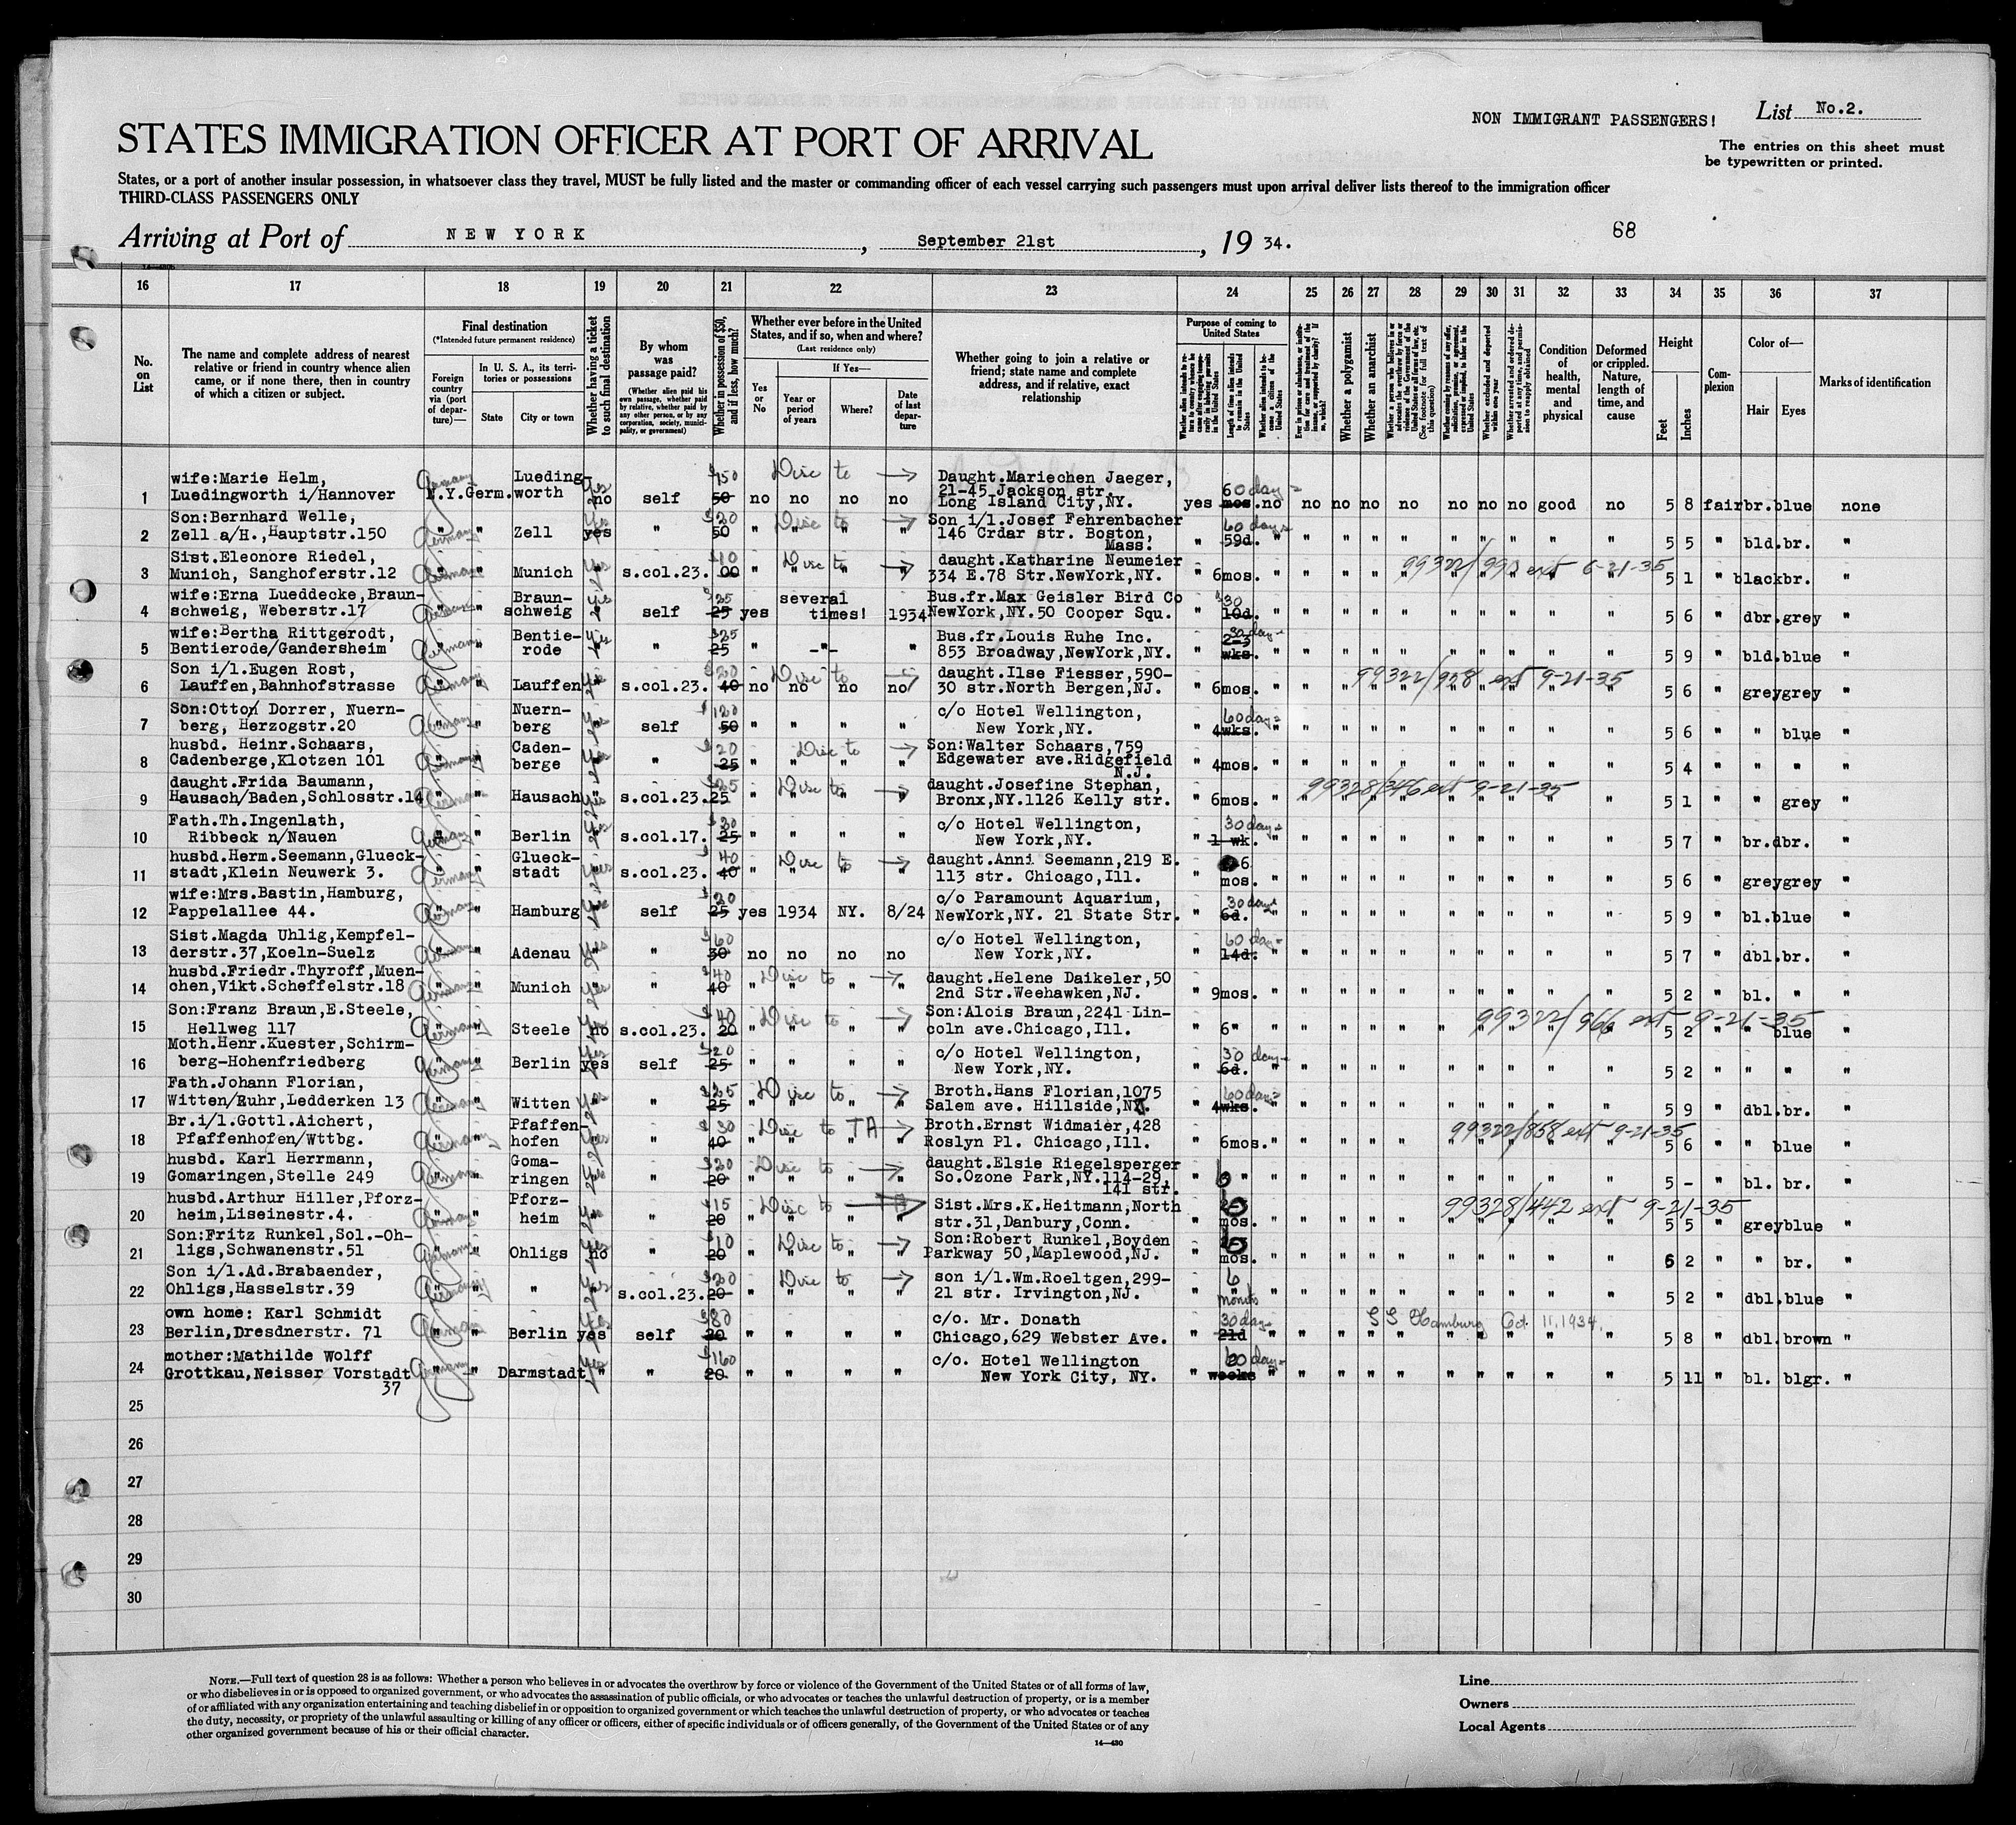 NON IMMIGRANT PASSENGERS!
List No.2.
STATES IMMIGRATION OFFICER AT PORT OF ARRIVAL
The entries on this sheet must
be typewritten or printed.
States, or a port of another insular possession, in whatsoever class they travel, MUST be fully listed and the master or commanding officer of each vessel carrying such passengers must upon arrival deliver lists thereof to the immigration officer
THIRD-CLASS PASSENGERS ONLY
68
Arriving at Port of NEW YORK, September 21st, 19 34.
16 17 18 19 20 21 22 23 24 25 26 27 28 29 30 31 32 33 34 35 36 37
No. on List
The name and complete address of nearest
relative or friend in country whence alien
came, or if none there, then in country
of which a citizen or subject.
Final destination
(*Intended future permanent residence)
Foreign country via (port of departure)—
In U. S. A., its territories or possessions
State
City or town
Whether having a ticket to such final destination
By whom was passage paid?
(Whether alien paid his own passage, whether paid by relative, whether paid by any other person, or by any corporation, society, municipality, or government)
Whether in possession of $50, and if less, how much?
Whether ever before in the United States, and if so, when and where?
(Last residence only)
Yes or No
If Yes—
Year or period of years
Where?
Date of last departure
Whether going to join a relative or
friend; state name and complete
address, and if relative, exact
relationship
Purpose of coming to United States
Length of time alien intends to remain in the United States
Whether alien intends to become a citizen of the United States
Whether a polygamist
Whether an anarchist
Condition of health, mental and physical
Deformed or crippled. Nature, length of time, and cause
Height
Feet
Inches
Complexion
Color of—
Hair
Eyes
Marks of identification
wife:Marie Helm, Lueding- $150 Disc to → Daught.Mariechen Jaeger,
21-45 Jackson str. 60 days
1 Luedingworth i/Hannover Germany N.Y.Germ. worth yes no self 50 no no no no Long Island City,NY. yes mos. no no no no no no no no good no 5 8 fair br. blue none
Son:Bernhard Welle, $20 Disc to → Son i/l.Josef Fehrenbacher 60 days
2 Zell a/H.,Hauptstr.150 Germany " Zell yes " 50 " " " " 146 Crdar str. Boston, Mass. " 59d. " " " " " " " " " " 5 5 " bld. br. "
Sist.Eleonore Riedel, $10 Disc to → daughter.Katharine Neumeier 99322/993 ext 6-21-35
3 Munich, Sanghoferstr.12 Germany " Munich yes s.col.23. 00 " " " " 334 E.78 Str.NewYork,NY. " 6mos. " " " " " " " " " " 5 1 " black br. "
wife:Erna Lueddecke,Braun- Braun- $25 several Bus.fr.Max Geisler Bird Co 30
4 schweig, Weberstr.17 Germany " schweig yes self 25 yes times! 1934 NewYork,NY.50 Cooper Squ. " 10d. " " " " " " " " " " 5 6 " dbr. grey "
wife:Bertha Rittgerodt, Bentie- $25 Bus.fr.Louis Ruhe Inc. 30 days
5 Bentierode/Gandersheim Germany " rode yes " 25 " -"- " 853 Broadway,NewYork,NY. " 2-3 wks. " " " " " " " " " " 5 9 " bld. blue "
Son i/l.Eugen Rost, $20 Disc to → daught.Ilse Fiesser,590- 99322/928 ext 9-21-35
6 Lauffen,Bahnhofstrasse Germany " Lauffen yes s.col.23. 40 no no no no 30 str.North Bergen,NJ. " 6mos. " " " " " " " " " " 5 6 " grey grey "
Son:Otto Dorrer, Nuern- Nuern- $120 c/o Hotel Wellington, 60 days
7 berg, Herzogstr.20 Germany " berg yes self 50 " " " " New York,NY. " 4wks. " " " " " " " " " " 5 6 " " blue "
husbd. Heinr.Schaars, Caden- $20 Disc to → Son:Walter Schaars,759
8 Cadenberge,Klotzen 101 Germany " berge yes " 25 " " " " Edgewater ave.Ridgefield N.J. " 4mos. " " " " " " " " " " 5 4 " " " "
daught.Frida Baumann, $25 Disc to → daught.Josefine Stephan, 99328/346 ext 9-21-35
9 Hausach/Baden,Schlosstr.14 Germany " Hausach yes s.col.23. 25 " " " " Bronx,NY.1126 Kelly str. " 6mos. " " " " " " " " " " 5 1 " " grey "
Fath.Th.Ingenlath, $30 c/o Hotel Wellington, 30 days
10 Ribbeck n/Nauen Germany " Berlin yes s.col.17. 25 " " " " New York,NY. " 1 wk. " " " " " " " " " " 5 7 " br. dbr. "
husbd.Herm.Seemann,Glueck- Glueck- $40 Disc to → daught.Anni Seemann,219 E. 6
11 stadt,Klein Neuwerk 3. Germany " stadt yes s.col.23. 40 " " " " 113 str. Chicago,Ill. " mos. " " " " " " " " " " 5 6 " grey grey "
wife:Mrs.Bastin,Hamburg, $20 c/o Paramount Aquarium, 30 days
12 Pappelallee 44. Germany " Hamburg yes self 25 yes 1934 NY. 8/24 NewYork,NY. 21 State Str. " 6d. " " " " " " " " " " 5 9 " bl. blue "
Sist.Magda Uhlig,Kempfel- $60 c/o Hotel Wellington, 60 days
13 derstr.37,Koeln-Suelz Germany " Adenau yes " 30 no no no no New York,NY. " 14d. " " " " " " " " " " 5 7 " dbl. br. "
husbd.Friedr.Thyroff,Muen- $40 Disc to → daught.Helene Daikeler,50
14 chen,Vikt.Scheffelstr.18 Germany " Munich yes " 40 " " " " 2nd Str.Weehawken,NJ. " 9mos. " " " " " " " " " " 5 2 " bl. " "
Son:Franz Braun,E.Steele, $40 Disc to → Son:Alois Braun,2241 Lin- 99322/966 ext 9-21-35
15 Hellweg 117 Germany " Steele yes no s.col.23. 20 " " " " coln ave.Chicago,Ill. " 6" " " " " " " " " " " 5 2 " " blue "
Moth.Henr.Kuester,Schirm- yes $20 c/o Hotel Wellington, 30 days
16 berg-Hohenfriedberg Germany " Berlin yes self 25 " " " " New York,NY. " 6d. " " " " " " " " " " 5 2 " " " "
Fath.Johann Florian, $25 Disc to → Broth.Hans Florian,1075 60 days
17 Witten/Ruhr,Ledderken 13 Germany " Witten yes " 25 " " " " Salem ave. Hillside,NJ. " 4wks. " " " " " " " " " " 5 9 " dbl. br. "
Br.i/l.Gottl.Aichert, Pfaffen- $30 Disc to TA → Broth.Ernst Widmaier,428 99322/858 ext 9-21-35
18 Pfaffenhofen/Wttbg. Germany " hofen yes " 40 " " " " Roslyn Pl. Chicago,Ill. " 6mos. " " " " " " " " " " 5 6 " " blue "
husbd. Karl Herrmann, Goma- $20 Disc to → daught.Elsie Riegelsperger
19 Gomaringen,Stelle 249 Germany " ringen yes " 20 " " " " So.Ozone Park,NY.114-29, 141 str. " 6 " " " " " " " " " " " 5 - " bl. br. "
husbd.Arthur Hiller,Pforz- Pforz- $15 Disc to → Sist.Mrs.K.Heitmann,North 6 99328/442 ext 9-21-35
20 heim,Liseinestr.4. Germany " heim yes " 20 " " " " str.31,Danbury,Conn. " mos. " " " " " " " " " " 5 5 " grey blue "
Son:Fritz Runkel,Sol.-Oh- yes $10 Disc to → Son:Robert Runkel,Boyden 6
21 ligs,Schwanenstr.51 Germany " Ohligs no " 20 " " " " Parkway 50,Maplewood,NJ. " mos. " " " " " " " " " " 5 2 " " br. "
Son i/l.Ad.Brabaender, $20 Disc to → son i/l.Wm.Roeltgen,299- 6
22 Ohligs,Hasselstr.39 Germany " " yes s.col.23. 20 " " " " 21 str. Irvington,NJ. " months " " " " " " " " " " 5 2 " dbl. blue "
own home: Karl Schmidt yes $80 c/o. Mr. Donath 30 days SS Hamburg Oct 11, 1934.
23 Berlin,Dresdnerstr. 71 German " Berlin yes self 20 " " " " Chicago,629 Webster Ave. " 21d " " " " " " " " " " 5 8 " dbl. brown "
mother:Mathilde Wolff yes $160 c/o. Hotel Wellington 60 days
24 Grottkau,Neisser Vorstadt 37 Germany " Darmstadt " " 20 " " " " New York City, NY. " weeks " " " " " " " " " " 5 11 " bl. blgr. "
25
26
27
28
29
30
NOTE.—Full text of question 28 is as follows: Whether a person who believes in or advocates the overthrow by force or violence of the Government of the United States or of all forms of law,
or who disbelieves in or is opposed to organized government, or who advocates the assassination of public officials, or who advocates or teaches the unlawful destruction of property, or is a member
of or affiliated with any organization entertaining and teaching disbelief in or opposition to organized government or which teaches the unlawful destruction of property, or who advocates or teaches
the duty, necessity, or propriety of the unlawful assaulting or killing of any officer or officers, either of specific individuals or of officers generally, of the Government of the United States or of any
other organized government because of his or their official character.
14—430
Line
Owners
Local Agents